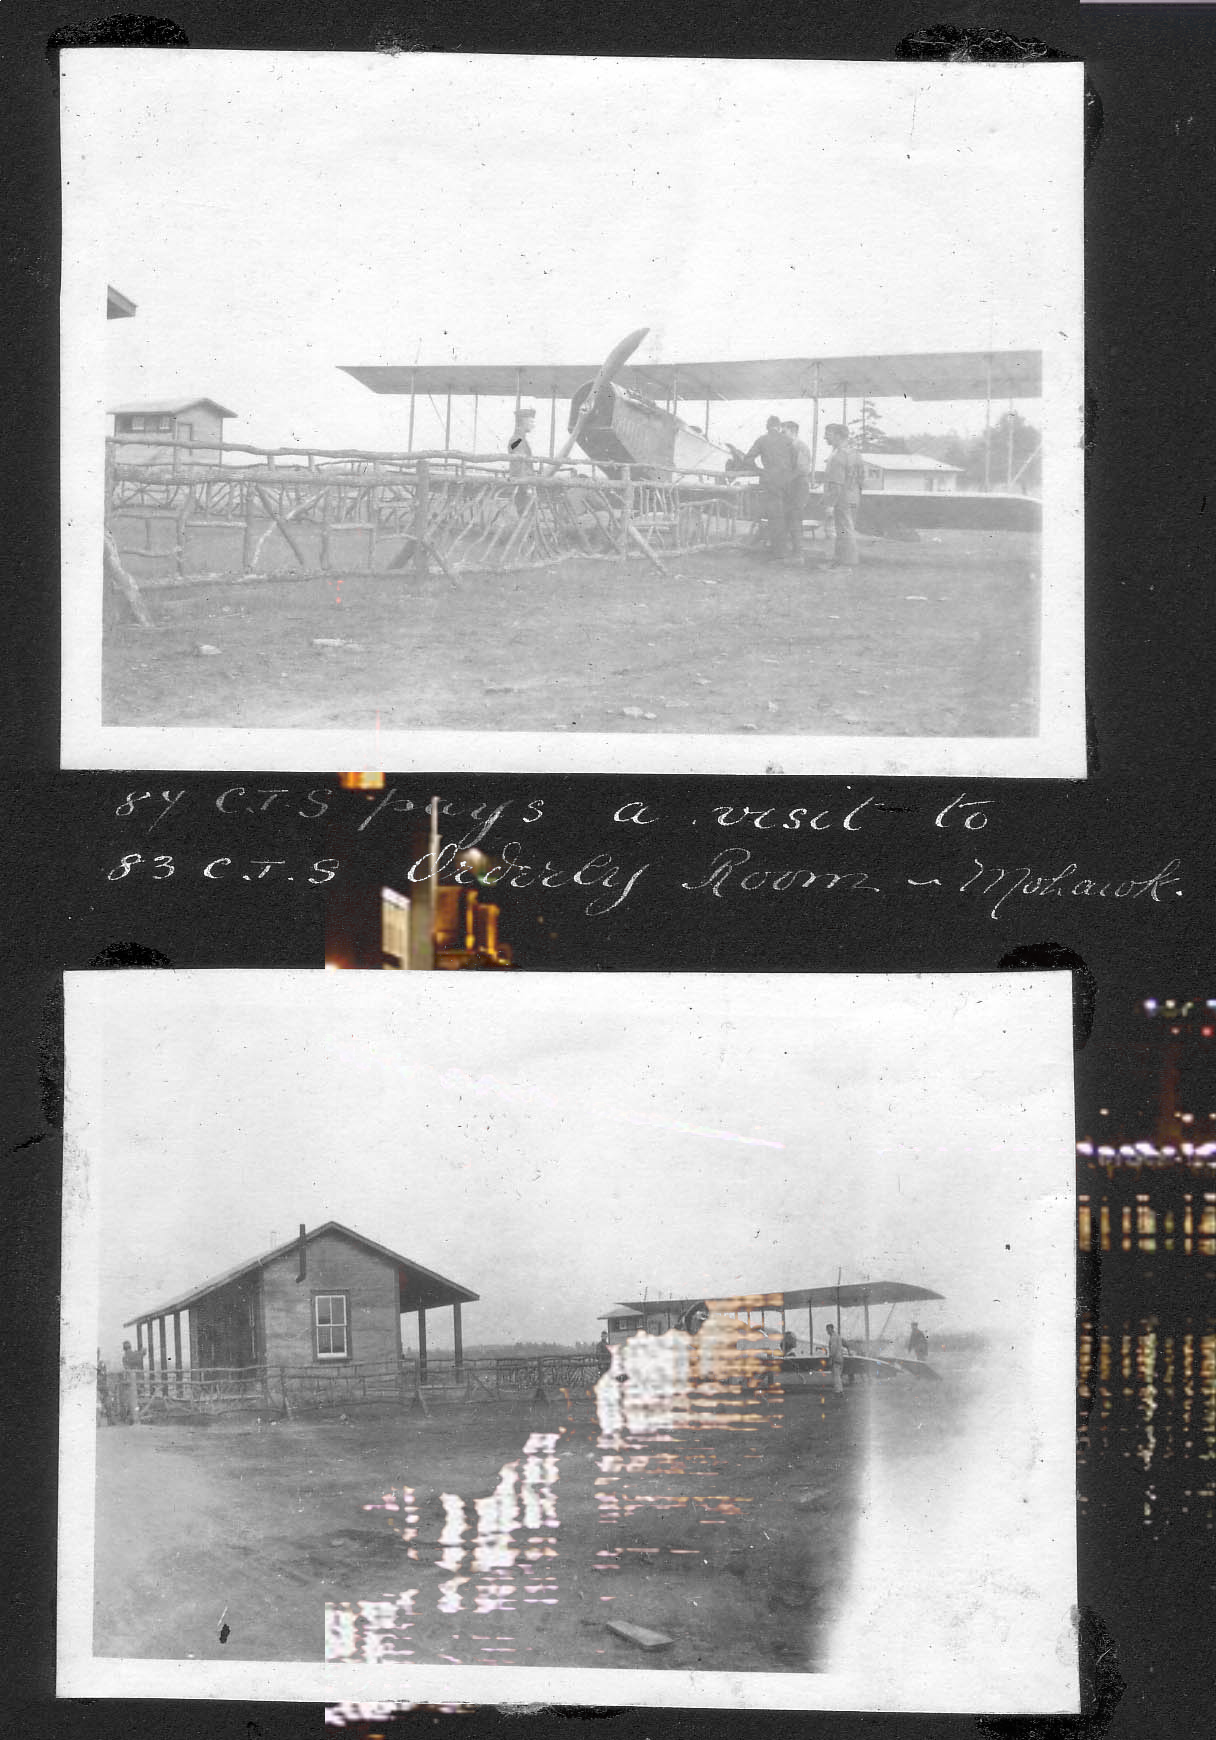 84 C.T.S pays a visit to
83 C.T.S Orderly Room - Mohawk.